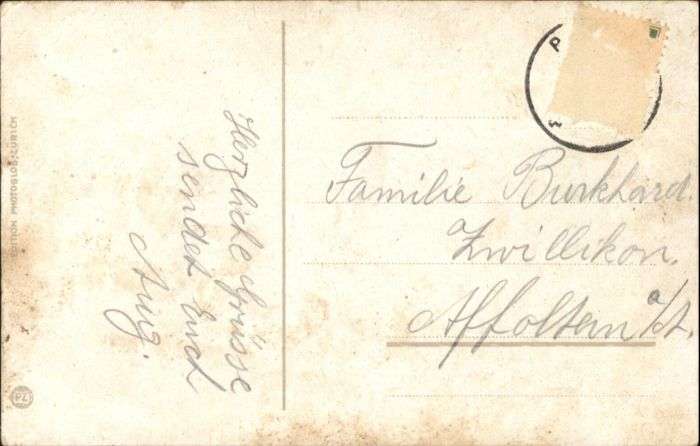 Herzliche Grüsse
sendet Euch
Aug.
Familie Burkhard.
Zwillikon.
Affoltern a/A.
EDITION PHOTOGLOB, ZÜRICH
PZ
P